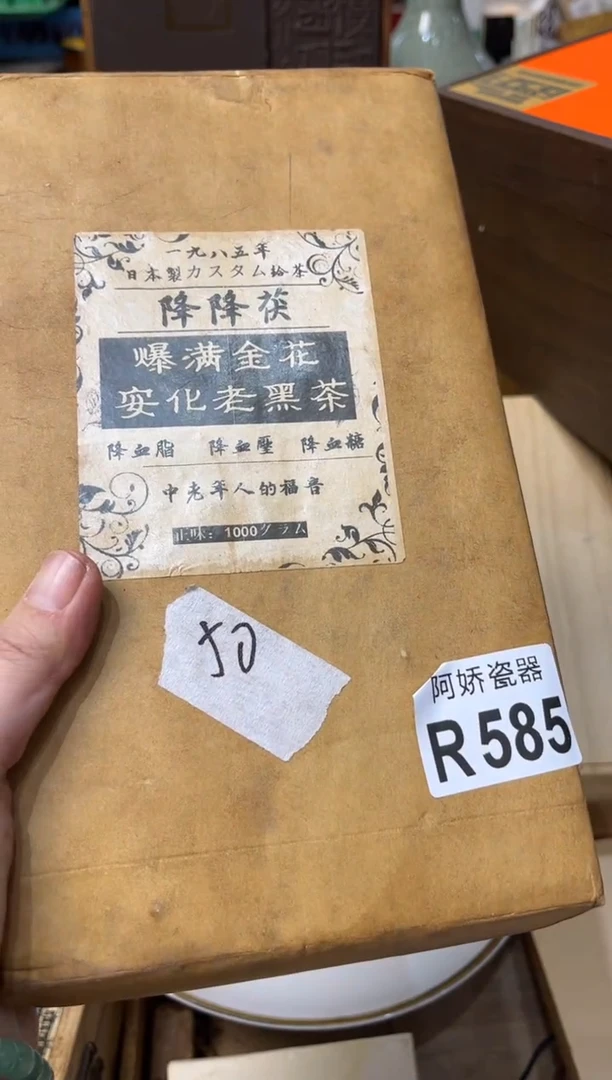 一九八五年
日本製カスタム拾茶
降降茯
爆满金花
安化老黑茶
降血脂 降血壓 降血糖
中老年人的福音
正味：1000グラム
50
阿娇瓷器
R585